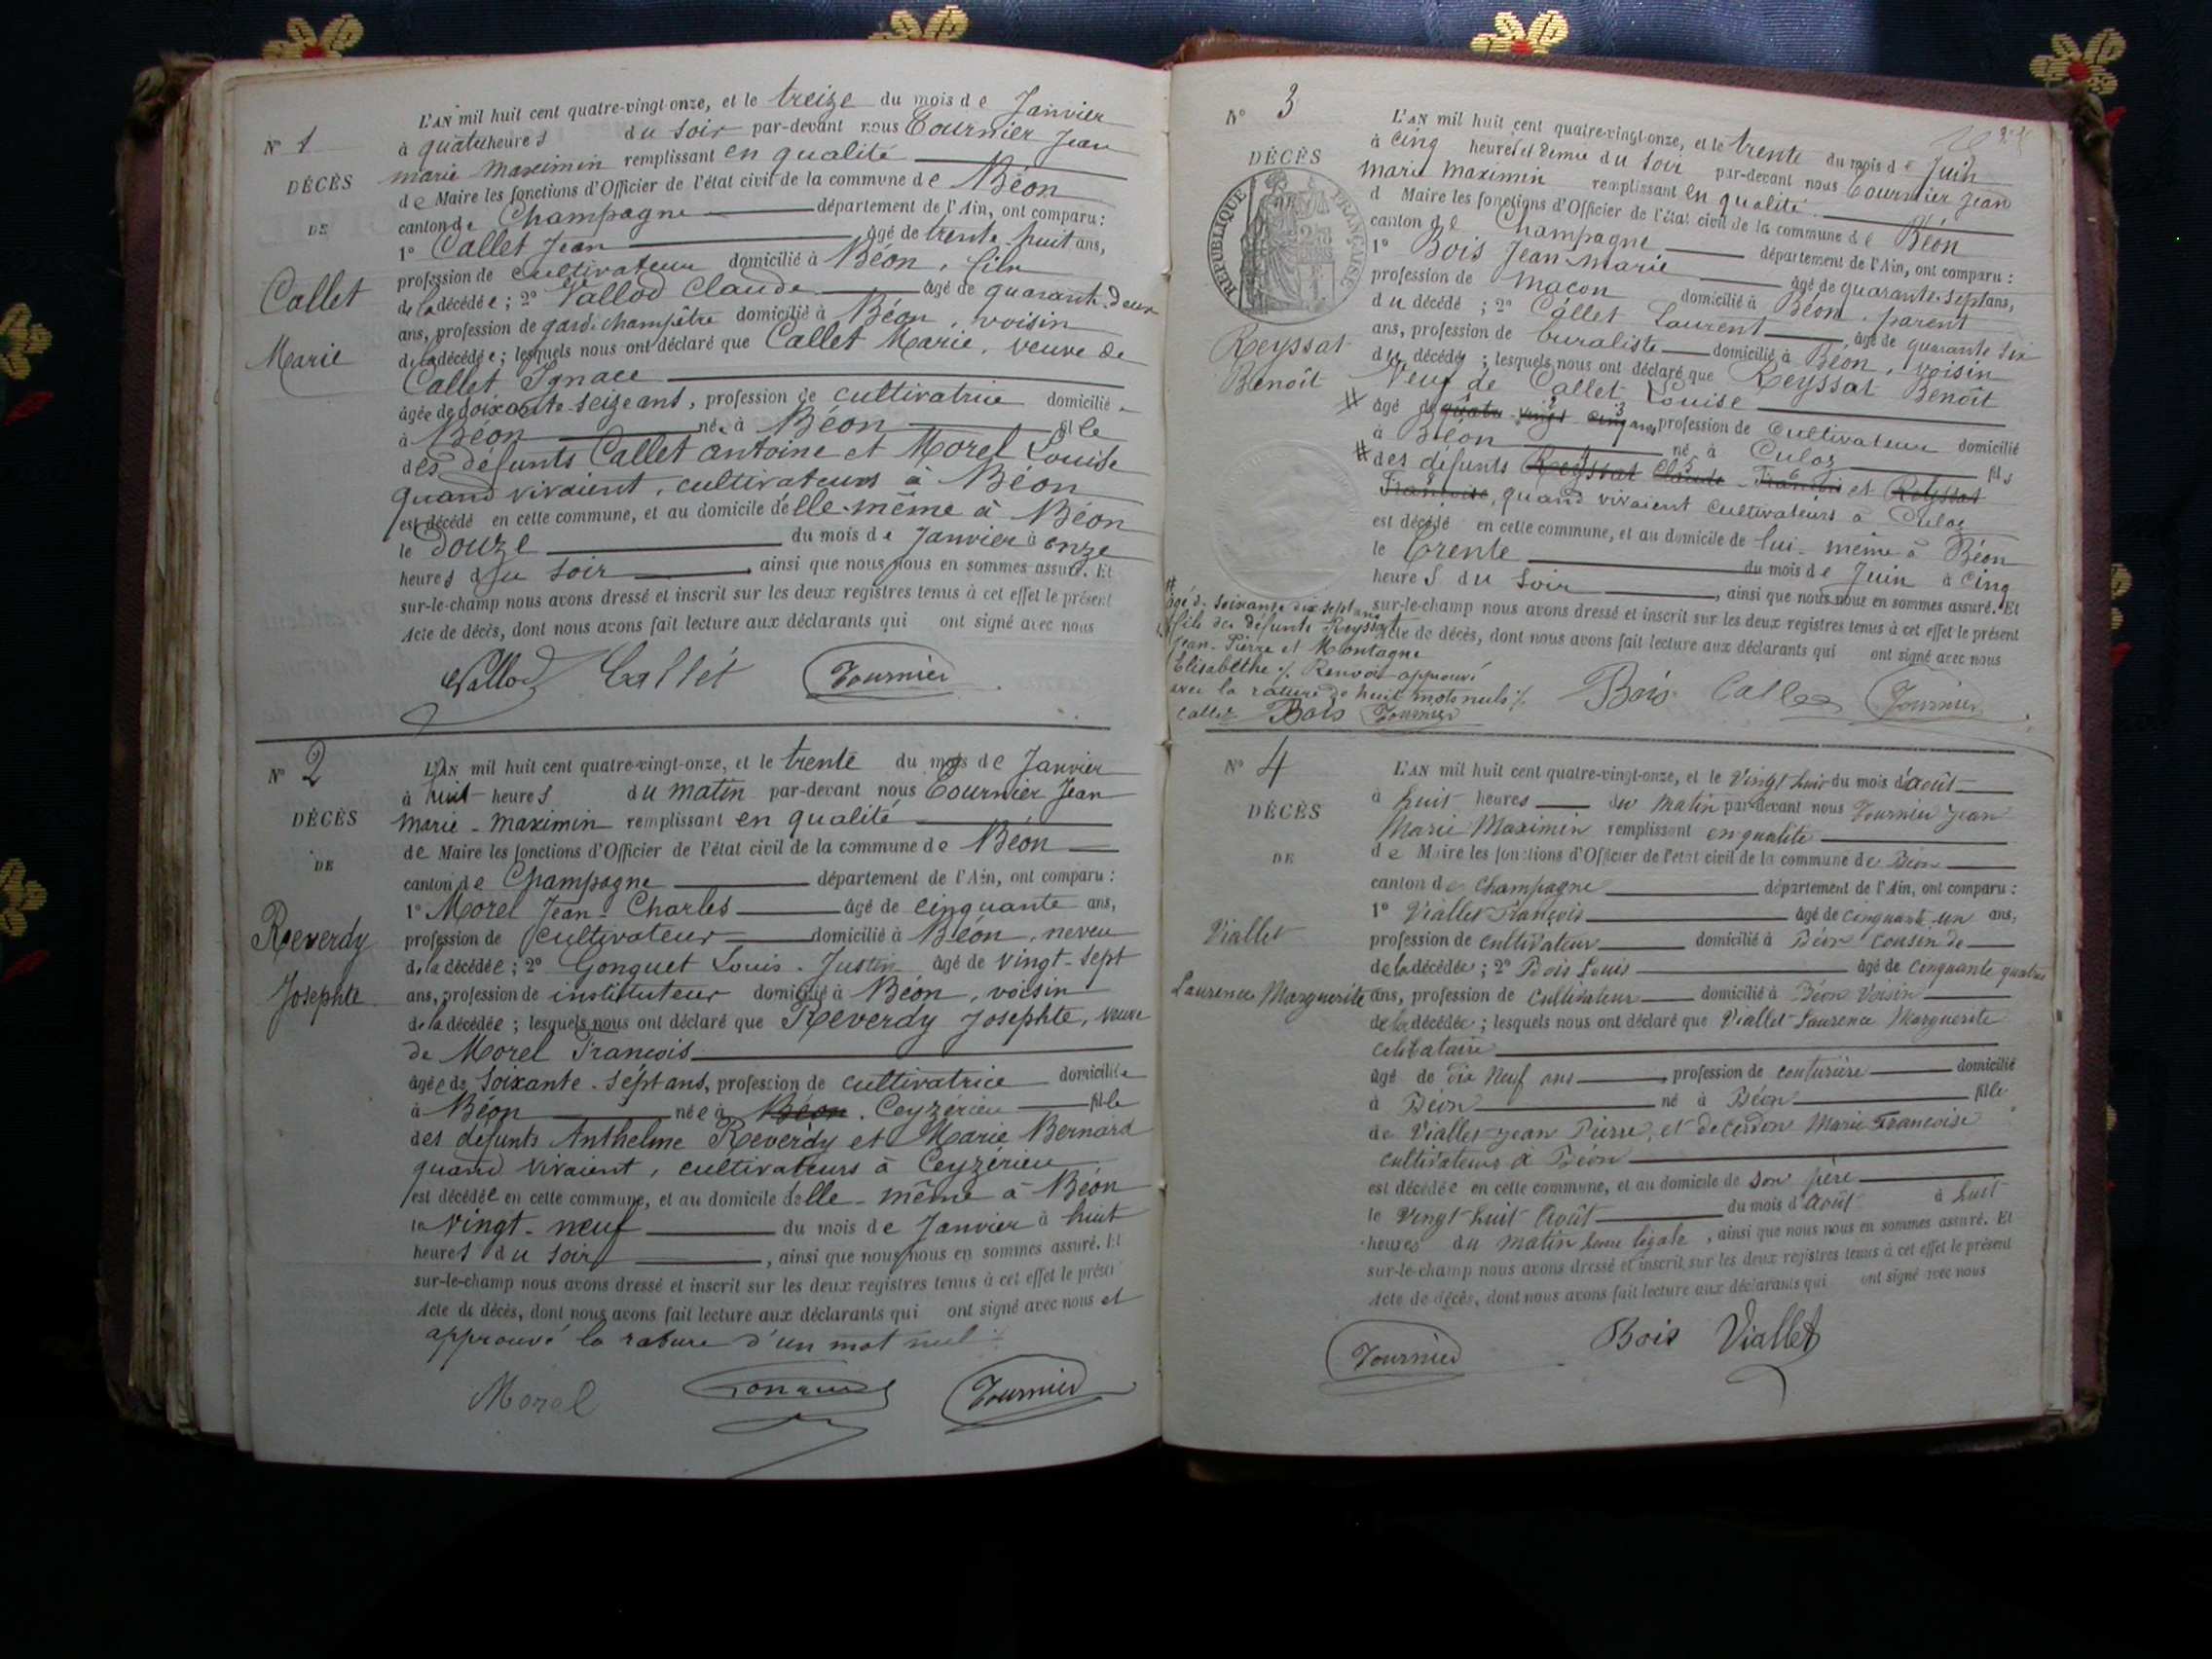 N° 1
DÉCÈS
DE
Callet
Marie
L'AN mil huit cent quatre-vingt-onze, et le treize du mois de Janvier
à quatre heures du soir par-devant nous Tournier Jean
marie maximin remplissant en qualité
de Maire les fonctions d'Officier de l'état civil de la commune de Béon
canton de Champagne département de l'Ain, ont comparu :
1° Callet Jean âgé de trente-huit ans,
profession de cultivateur domicilié à Béon, fils
de la décédée ; 2° Vallod Claude âgé de quarante-deux
ans, profession de garde champêtre domicilié à Béon, voisin
de la décédée ; lesquels nous ont déclaré que Callet Marie, veuve de
Callet Ignace
âgée de soixante-seize ans, profession de cultivatrice domicilié
à Béon née à Béon fille
des défunts Callet antoine et Morel Louise
quand vivaient, cultivateurs à Béon
est décédé en cette commune, et au domicile d'elle-même à Béon
le douze du mois de Janvier à onze
heures du soir, ainsi que nous nous en sommes assuré. Et
sur-le-champ nous avons dressé et inscrit sur les deux registres tenus à cet effet le présent
Acte de décès, dont nous avons fait lecture aux déclarants qui ont signé avec nous
Vallod Callet Tournier
N° 2
DÉCÈS
DE
Reverdy
Josephte
L'AN mil huit cent quatre-vingt-onze, et le trente du mois de Janvier
à huit heures du matin par-devant nous Tournier Jean
Marie-maximin remplissant en qualité
de Maire les fonctions d'Officier de l'état civil de la commune de Béon
canton de Champagne département de l'Ain, ont comparu :
1° Morel Jean-Charles âgé de cinquante ans,
profession de cultivateur domicilié à Béon, neveu
de la décédée ; 2° Gonguet Louis-Justin âgé de vingt-sept
ans, profession de instituteur domicilié à Béon, voisin
de la décédée ; lesquels nous ont déclaré que Reverdy Josephte, veuve
de Morel François
âgée de soixante-sept ans, profession de cultivatrice domiciliée
à Béon née à Béon. Ceyzérieu fille
des défunts Anthelme Reverdy et Marie Bernard
quand vivaient, cultivateurs à Ceyzérieu
est décédée en cette commune, et au domicile d'elle-même à Béon
le vingt-neuf du mois de Janvier à huit
heures du soir, ainsi que nous nous en sommes assuré. Et
sur-le-champ nous avons dressé et inscrit sur les deux registres tenus à cet effet le présent
Acte de décès, dont nous avons fait lecture aux déclarants qui ont signé avec nous et
approuvé la rature d'un mot nul
Morel Tournier
N° 3
DÉCÈS
RÉPUBLIQUE FRANÇAISE
Reyssat
Benoît
L'AN mil huit cent quatre-vingt-onze, et le trente du mois de Juin
à cinq heures et demie du soir par-devant nous Tournier Jean
marie maximin remplissant en qualité
d Maire les fonctions d'Officier de l'état civil de la commune de Béon
canton de Champagne département de l'Ain, ont comparu :
1° Bois Jean-Marie âgé de quarante-sept ans,
profession de maçon domicilié à Béon, parent
du décédé ; 2° Callet Laurent, âgé de quarante six
ans, profession de buraliste domicilié à Béon, voisin
du décédé ; lesquels nous ont déclaré que Reyssat Benoît
Veuf de Callet Louise
# âgé de quatre-vingt cinq ans, profession de Cultivateur domicilié
à Béon né à Culoz fils
# des défunts Reyssat Claude-François et Reyssat
Françoise, quand vivaient cultivateurs à Culoz
est décédé en cette commune, et au domicile de lui-même à Béon
le trente du mois de Juin à cinq
heures du soir, ainsi que nous nous en sommes assuré. Et
sur-le-champ nous avons dressé et inscrit sur les deux registres tenus à cet effet le présent
Acte de décès, dont nous avons fait lecture aux déclarants qui ont signé avec nous
# âgé de soixante dix sept ans
# fils des défunts Reyssat
Jean-Pierre et Montagne
Elisabethe ./. Renvoi approuvé
avec la rature de huit mots nuls ./.
Callet Bois Tournier
Bois Callet Tournier
N° 4
DÉCÈS
DE
Viallet
Laurence Marguerite
L'AN mil huit cent quatre-vingt-onze, et le Vingt huit du mois d'août
à huit heures du matin par-devant nous Tournier Jean
Marie Maximin remplissant en qualité
de Maire les fonctions d'Officier de l'état civil de la commune de Béon
canton de Champagne département de l'Ain, ont comparu :
1° Viallet François âgé de cinquante un ans,
profession de cultivateur domicilié à Béon cousin de
de la décédée ; 2° Bois Louis âgé de cinquante quatre
ans, profession de cultivateur domicilié à Béon Voisin
de la décédée ; lesquels nous ont déclaré que Viallet Laurence Marguerite
celibataire
âgé de dix neuf ans, profession de couturière domicilié
à Béon né à Béon fille
de Viallet Jean Pierre, et de Cerdon Marie Françoise
cultivateurs à Béon
est décédée en cette commune, et au domicile de son père
le vingt huit Août du mois d'août à huit
heures du matin heure légale, ainsi que nous nous en sommes assuré. Et
sur-le-champ nous avons dressé et inscrit sur les deux registres tenus à cet effet le présent
Acte de décès, dont nous avons fait lecture aux déclarants qui ont signé avec nous
Tournier Bois Viallet